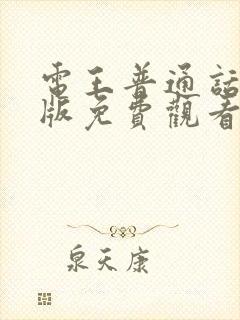 電王普通話
版免費觀看
泉天康